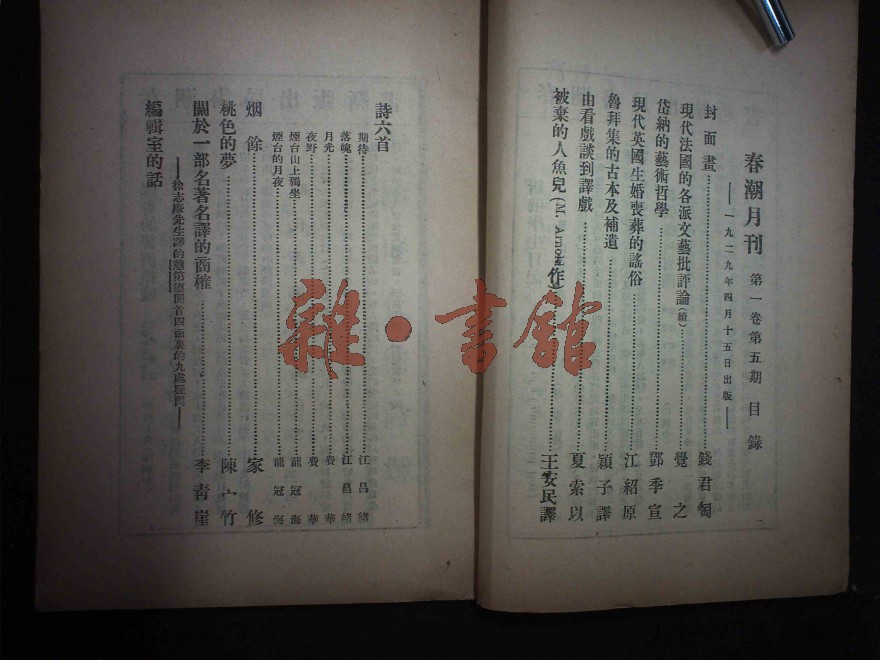 春潮月刊 第一卷第五期目錄
——一九二九年四月十五日出版——
封面畫 錢君匋
現代法國的各派文藝批評論(續) 覺之
岱納的藝術哲學 鄧季宣
現代英國生婚喪葬的謠俗 江紹原
魯拜集的古本及補遺 穎子譯
由看戲談到譯戲 夏索以
被棄的人魚兒(M. Arnold作) 王安民譯
詩六首
期待 江昌緒
落魄 江昌緒
月光 費華
夜野 費華
煙台山上獨坐 龍冠海
煙台的月夜 龍冠海
烟餘 家修
桃色的夢 陳宀竹
關於一部名著名譯的商榷 李青崖
——徐志摩先生譯的贛第德開首四面裏的九處疑問——
編輯室的話
雜·書館